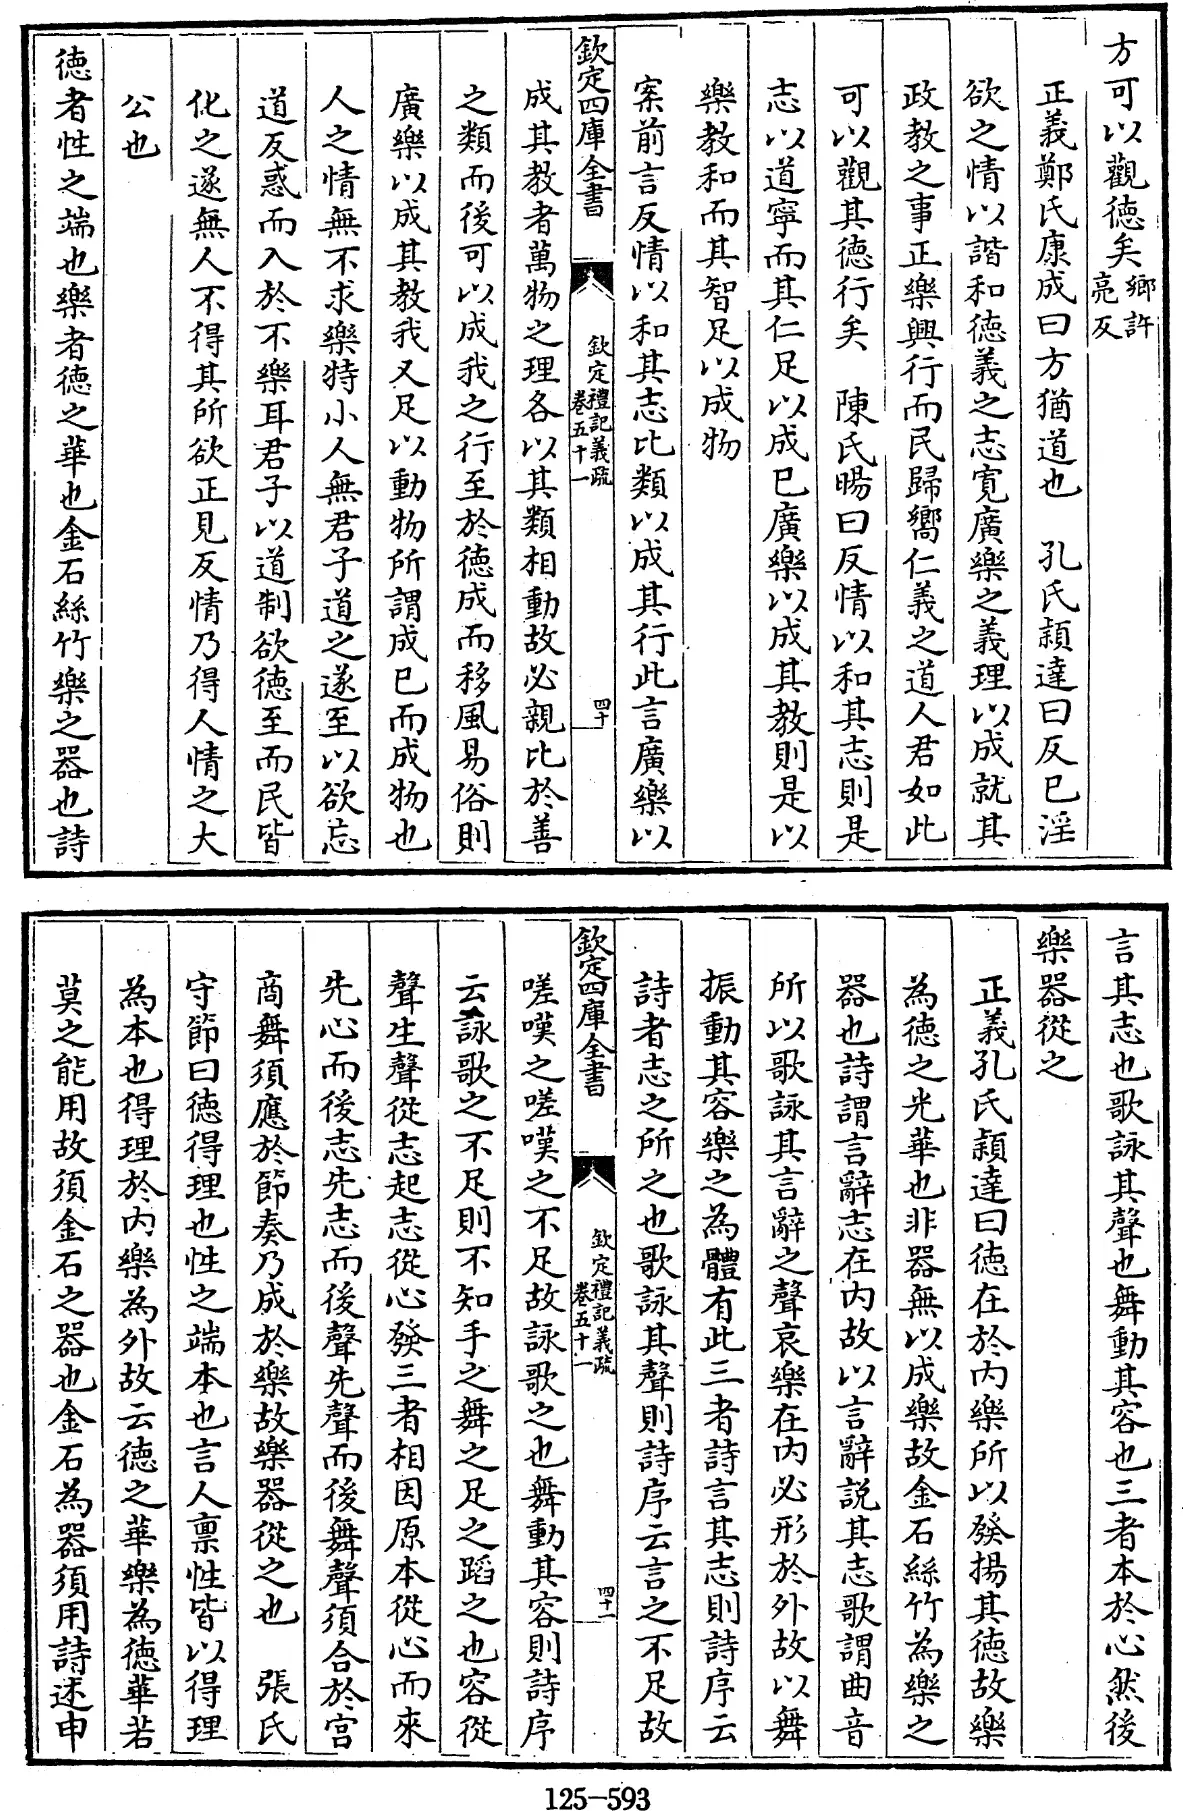 方可以觀徳矣鄉許亮反
正義鄭氏康成曰方猶道也　孔氏頴達曰反已淫
欲之情以諧和徳義之志寛廣樂之義理以成就其
政教之事正樂興行而民歸嚮仁義之道人君如此
可以觀其徳行矣　陳氏暘曰反情以和其志則是
志以道寧而其仁足以成已廣樂以成其教則是以
樂教和而其智足以成物
案前言反情以和其志比類以成其行此言廣樂以
欽定四庫全書
欽定禮記義疏
卷五十一
四十
成其教者萬物之理各以其類相動故必親比於善
之類而後可以成我之行至於徳成而移風易俗則
廣樂以成其教我又足以動物所謂成已而成物也
人之情無不求樂特小人無君子道之遂至以欲忘
道反惑而入於不樂耳君子以道制欲徳至而民皆
化之遂無人不得其所欲正見反情乃得人情之大
公也
徳者性之端也樂者徳之華也金石絲竹樂之器也詩
言其志也歌詠其聲也舞動其容也三者本於心然後
樂器從之
正義孔氏頴達曰徳在於内樂所以發揚其徳故樂
為徳之光華也非器無以成樂故金石絲竹為樂之
器也詩謂言辭志在内故以言辭說其志歌謂曲音
所以歌詠其言辭之聲哀樂在内必形於外故以舞
振動其容樂之為體有此三者詩言其志則詩序云
詩者志之所之也歌詠其聲則詩序云言之不足故
欽定四庫全書
欽定禮記義疏
卷五十一
四十一
嗟嘆之嗟嘆之不足故詠歌之也舞動其容則詩序
云詠歌之不足則不知手之舞之足之蹈之也容從
聲生聲從志起志從心發三者相因原本從心而來
先心而後志先志而後聲先聲而後舞聲須合於宫
商舞須應於節奏乃成於樂故樂器從之也　張氏
守節曰徳得理也性之端本也言人禀性皆以得理
為本也得理於内樂為外故云徳之華樂為徳華若
莫之能用故須金石之器也金石為器須用詩述申
125-593